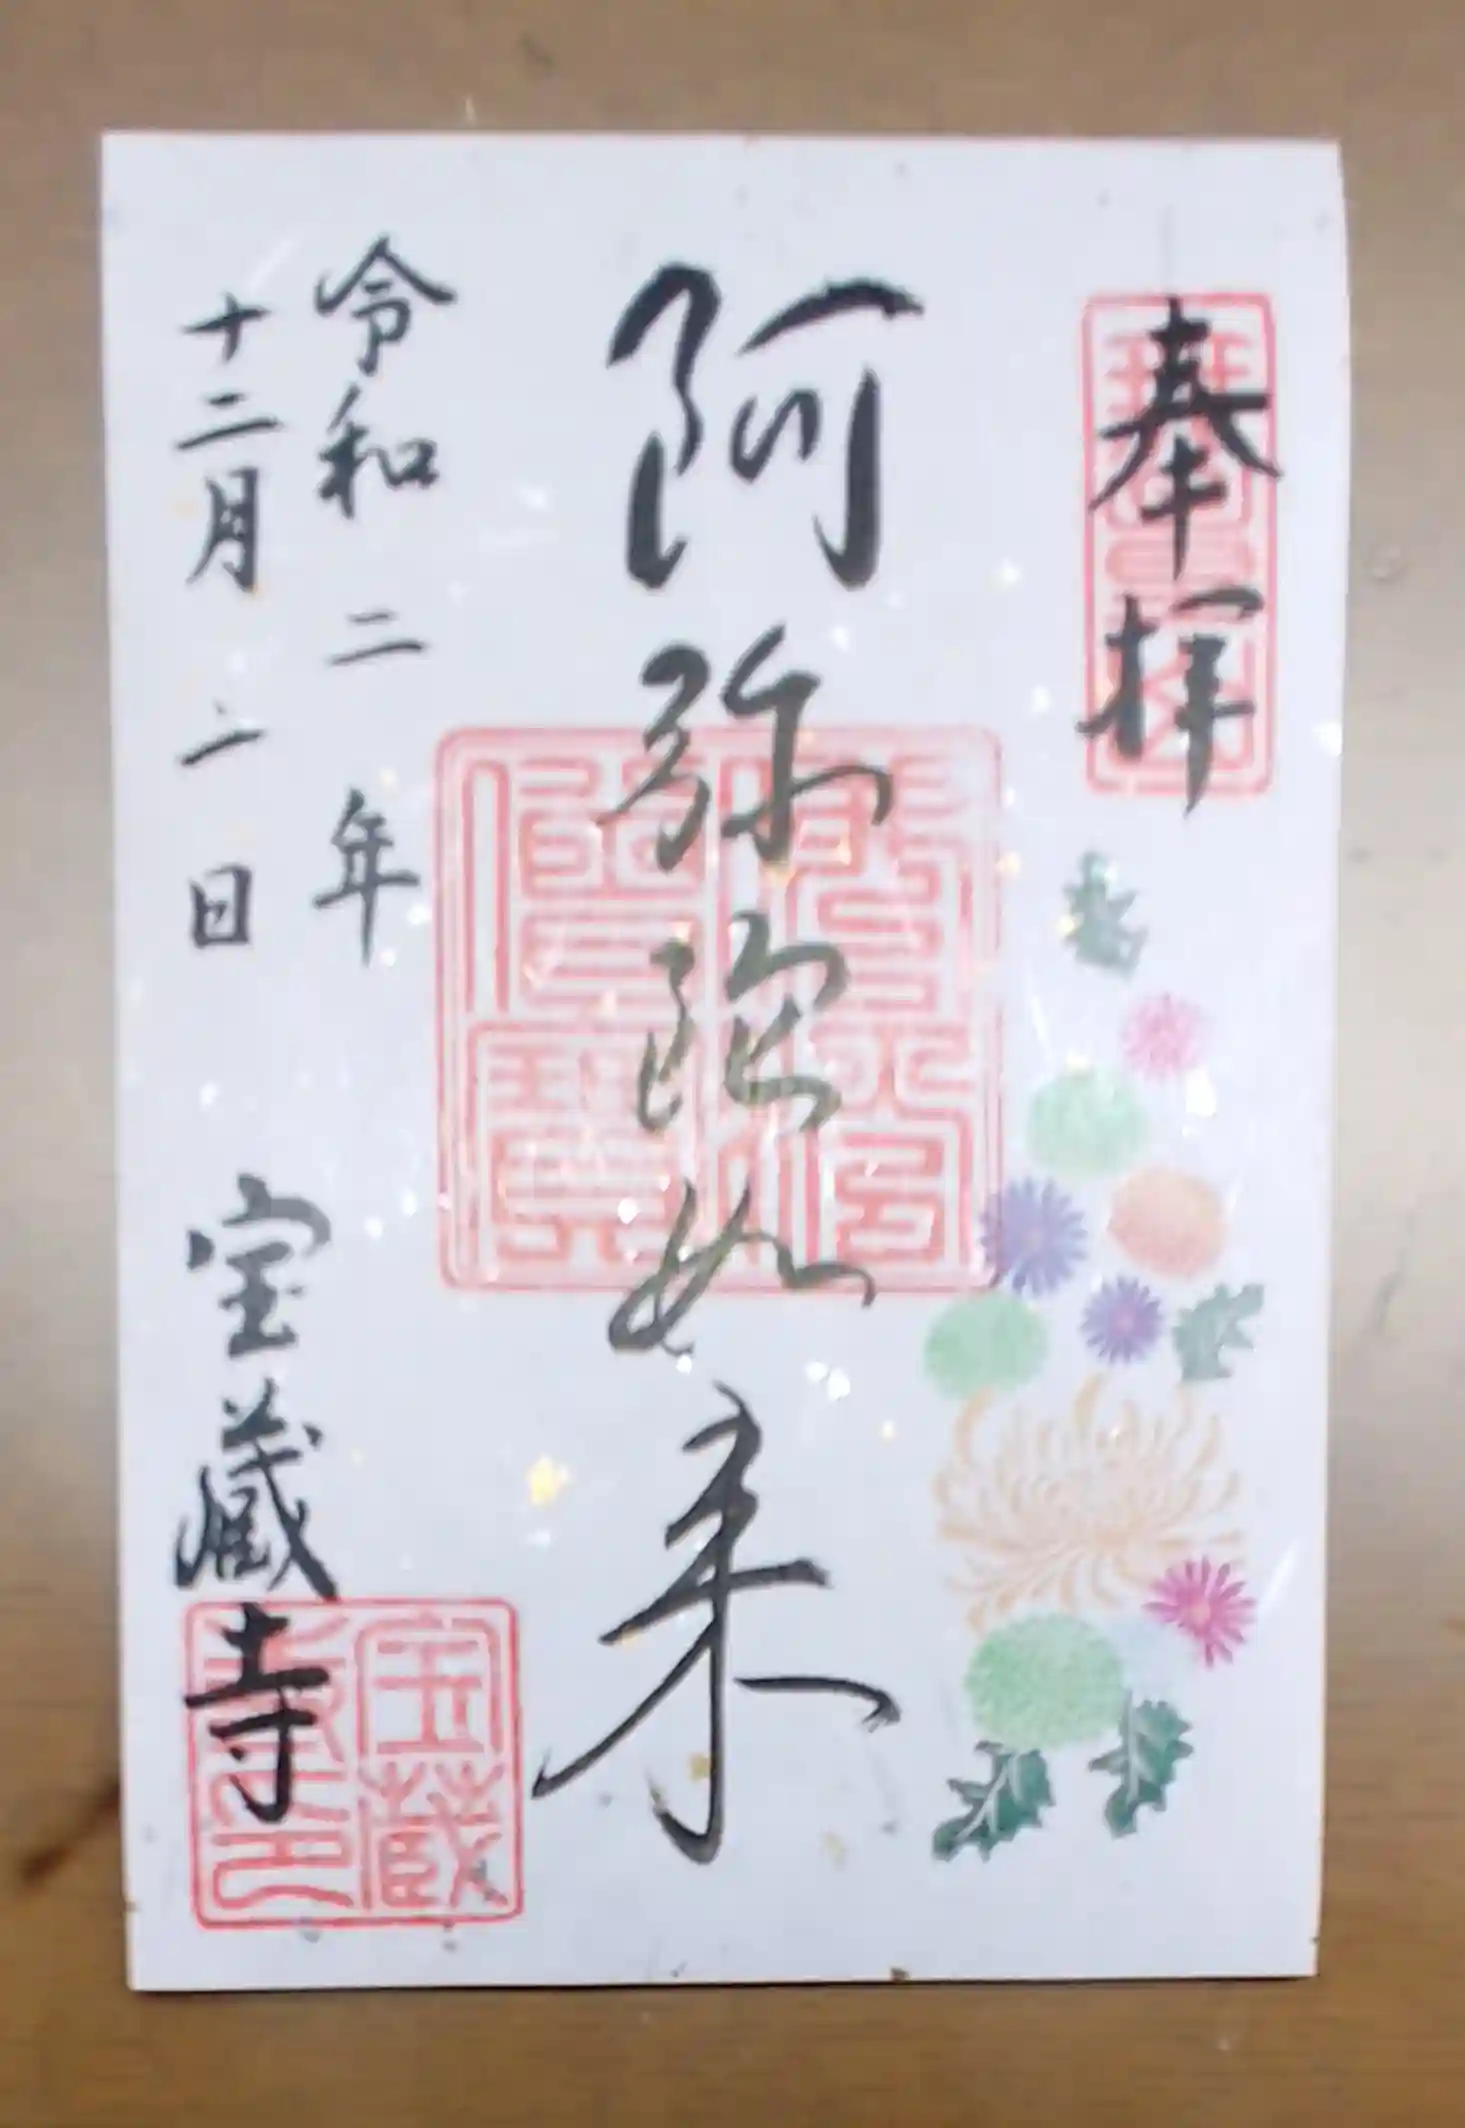 奉拝
阿弥陀如来
令和二年
十二月一日
宝蔵寺
宝蔵寺印